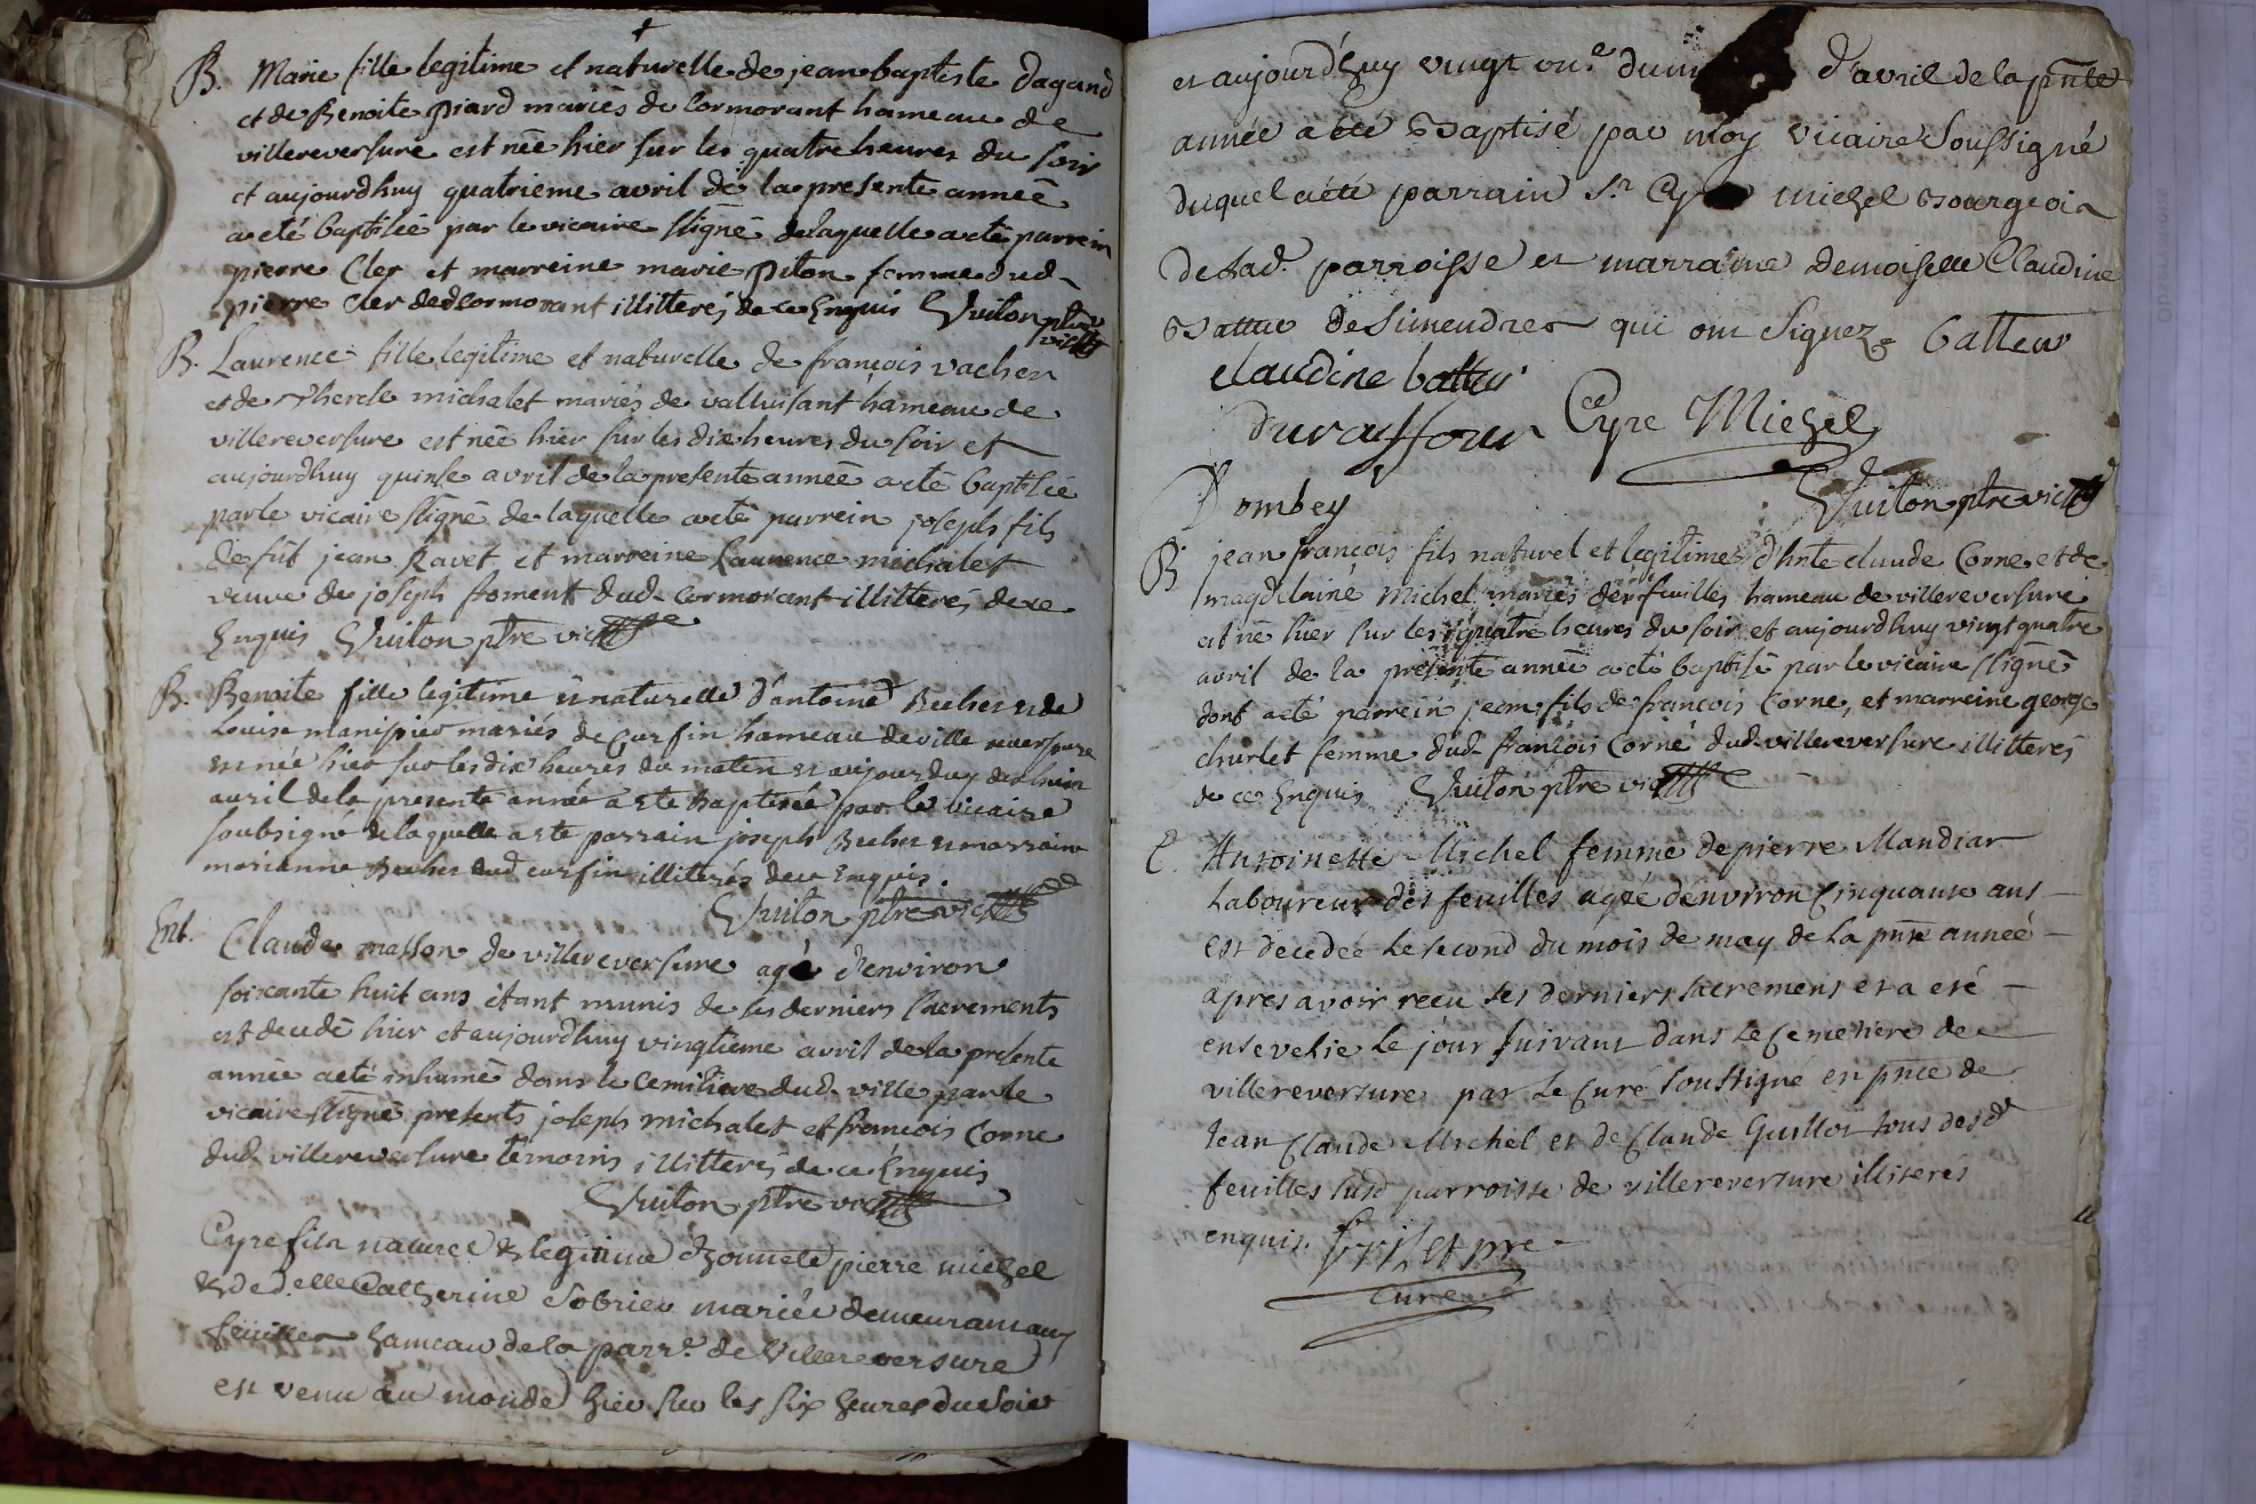 B. Marie fille legitime et naturelle de jean baptiste dagand
et de Benoite piard mariés de Cormorant hameau de
villereversure est néé hier sur les quatre heures du soir
et aujourdhuy quatrieme avril de la presente année
a eté baptisée par le vicaire ssigné de laquelle a eté parrein
pierre Cler et marreine marie piton femme dud
pierre Cler dud Cormorant illitterés de ce Enquis Vuiton ptre
vic
B. Laurence fille legitime et naturelle de françois vacher
et de therese michalet mariés de valluisant hameau de
villereversure est née hier sur les dix heures du soir et
aujourdhuy quinse avril de la presente année a eté baptisée
par le vicaire ssigné de laquelle a eté parrein joseph fils
de fût jean Ravet et marreine Laurence michalet
veuve de joseph froment dud Cormorant illitterés de ce
Enquis Vuiton ptre vic
B. Benoite fille legitime et naturelle d'antoine Becher et de
Louise manipier mariés de Curfin hameau de ville reversure
est née hier sur les dix heures du matin et aujourduy dixhuit
auril de la presente année a ete baptisée par le vicaire
soubsigné de laquelle a ete parrain joseph Becher et marraine
marianne Becher dud curfin illiterés de ce enquis.
Vuiton ptre vic
Ent. Claude masson de villereversure agé d'environ
soixante huit ans étant munis de ses derniers sacrements
est decedé hier et aujourdhuy vingtieme avril de la presente
année a eté inhumé dans le Cemitiere dud. ville par le
vicaire ssigné presents joseph michalet et françois Corne
dud villereversure temoins illitterés de ce Enquis
Vuiton ptre vic
Cyre fils naturel & legitime d'honnete pierre michel
& de d.elle Catherine Sobrier mariés demeurant aux
feuilles hameau de la parr.e de Villereversure
est venu au monde hier sur les six heures du soir
et aujourd'huy vingt un.e du d'avril de la pnte
année a été Baptisé par moy vicaire soussigné
duquel a été parrain S.r Cyre michel Bourgeois
de lad. parroisse et marraine demoiselle Claudine
Battur de Simendres qui ont signez batteur
claudine battur
durassour Cyre Michel
Dombey Vuiton ptre vic
B. jean françois fils naturel et legitime d'hnte claude Corne et de
magdelaine Michel mariés des feuilles hameau de villereversure
est né hier sur les quatre heures du soir et aujourdhuy vingt quatre
avril de la presente année a eté baptisé par le vicaire ssigné
dont a eté parrein jean fils de françois Corne, et marreine george
churlet femme dud françois Corne dud villereversure illitterés
de ce Enquis Vuiton ptre vic
E. Antoinette Michel femme de pierre Mandiar
Laboureur des feuilles agée d'environ Cinquante ans
est decedée le second du mois de may de la pnte année
apres avoir reçu ses derniers sacremens et a eté
ensevelie le jour suivant dans le Cemetiere de
villereversure par le Curé soussigné en pnce de
Jean Claude Michel et de Claude Guillot tous desd
feuilles susd parroisse de villereversure illiterés
enquis. pre
Curé